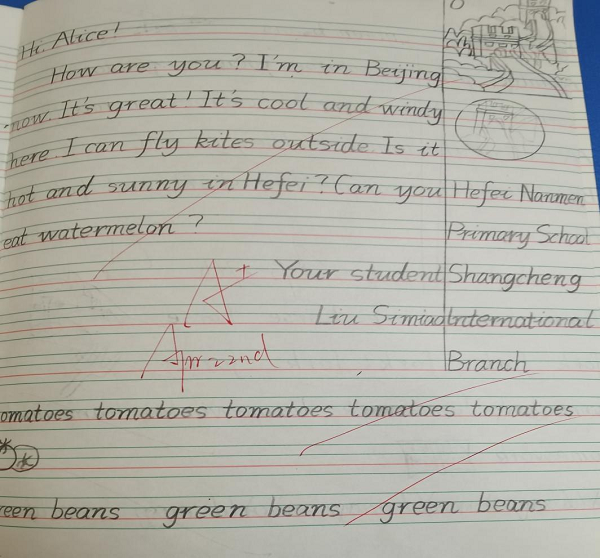 Hi, Alice!
How are you? I'm in Beijing
now. It's great! It's cool and windy
here. I can fly kites outside. Is it
hot and sunny in Hefei? Can you
eat watermelon?
Your student
Liu Simiao
Hefei Nanmen
Primary School
Shangcheng
International
Branch
A+
Apr 22nd
omatoes tomatoes tomatoes tomatoes tomatoes
een beans green beans green beans